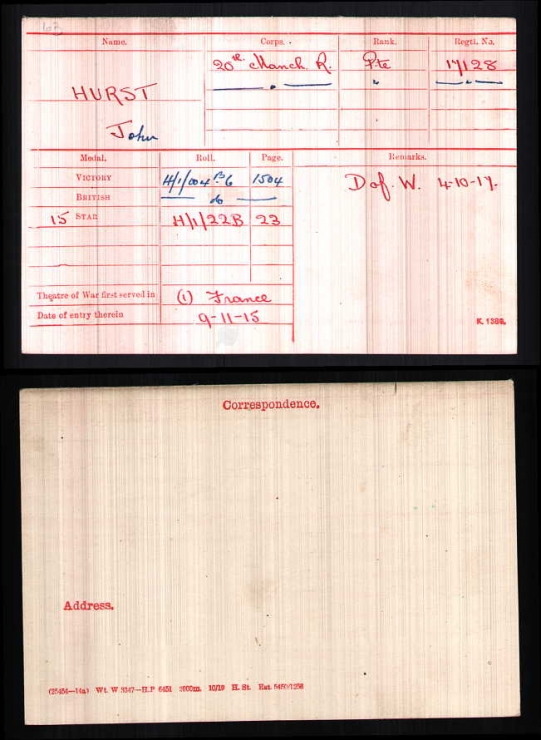 Name. Corps. Rank. Regtl. No.
20th Manch R. Pte 17128
HURST " . " "
John
Medal. Roll. Page. Remarks.
VICTORY H/1/004 B6 1504 D of. W. 4-10-17.
BRITISH do
15 STAR H/1/22B 23
Theatre of War first served in (1) France
Date of entry therein 9-11-15
K. 1380.
Correspondence.
Address.
Wt. W 3347—H.P 6451 10/19 H. St.